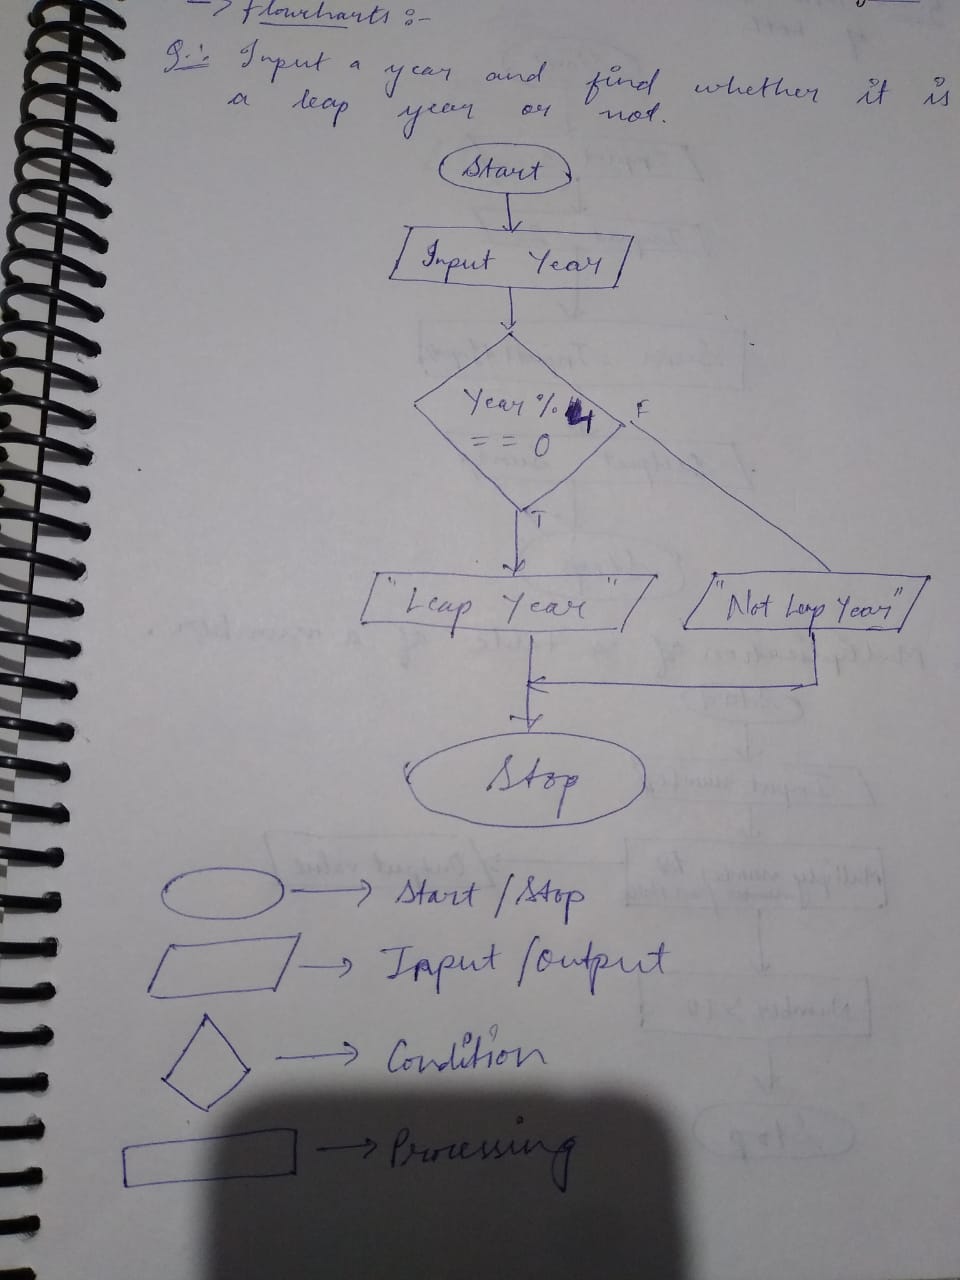 -> flowcharts :-
Q:- Input a year and find whether it is
a leap year or not.
Start
Input Year
Year % 4
== 0
F
T
"Leap Year"
"Not Leap Year"
Stop
→ Start / Stop
→ Input / Output
→ Condition
→ Processing